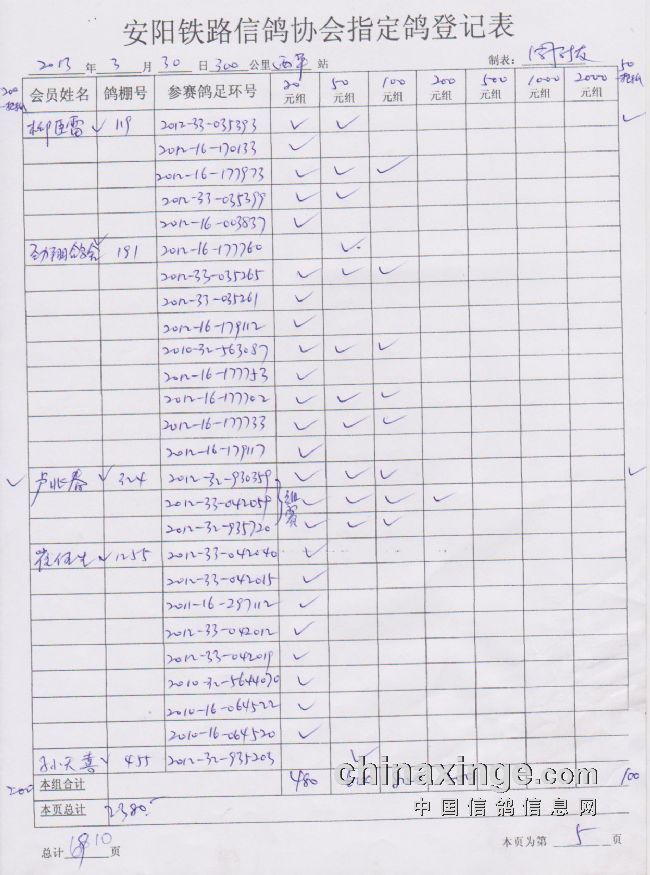 安阳铁路信鸽协会指定鸽登记表
2013 年 3 月 30 日 300 公里 西平 站 制表:
会员姓名 鸽棚号 参赛鸽足环号 20元组 50元组 100元组 200元组 500元组 1000元组 2000元组
119 2012-33-035393 ✓ ✓
2012-16-170133 ✓
2012-16-177973 ✓ ✓ ✓
2012-33-035399 ✓ ✓
2012-16-003837 ✓
191 2012-16-177760 ✓
2012-33-035265 ✓ ✓ ✓
2012-33-035261 ✓
2012-16-179112 ✓
2010-32-563087 ✓ ✓ ✓
2012-16-177753 ✓
2012-16-177702 ✓ ✓ ✓
2012-16-177733 ✓ ✓ ✓
2012-16-179117 ✓
✓ 324 2012-32-930359 ✓ ✓ ✓ ✓
2012-33-042059 ✓ ✓ ✓ ✓
2012-32-935720 ✓ ✓ ✓
1255 2012-33-042040 ✓
2012-33-042015 ✓
2011-16-297112 ✓
2012-33-042012 ✓
2012-33-042019 ✓
2010-16-064522 ✓
2010-16-064520 ✓
455 2012-32-935203 ✓
200 本组合计 480 100
本页总计 2380
chinaxinge.com
中国信鸽信息网
总计 10 页 本页为第 5 页